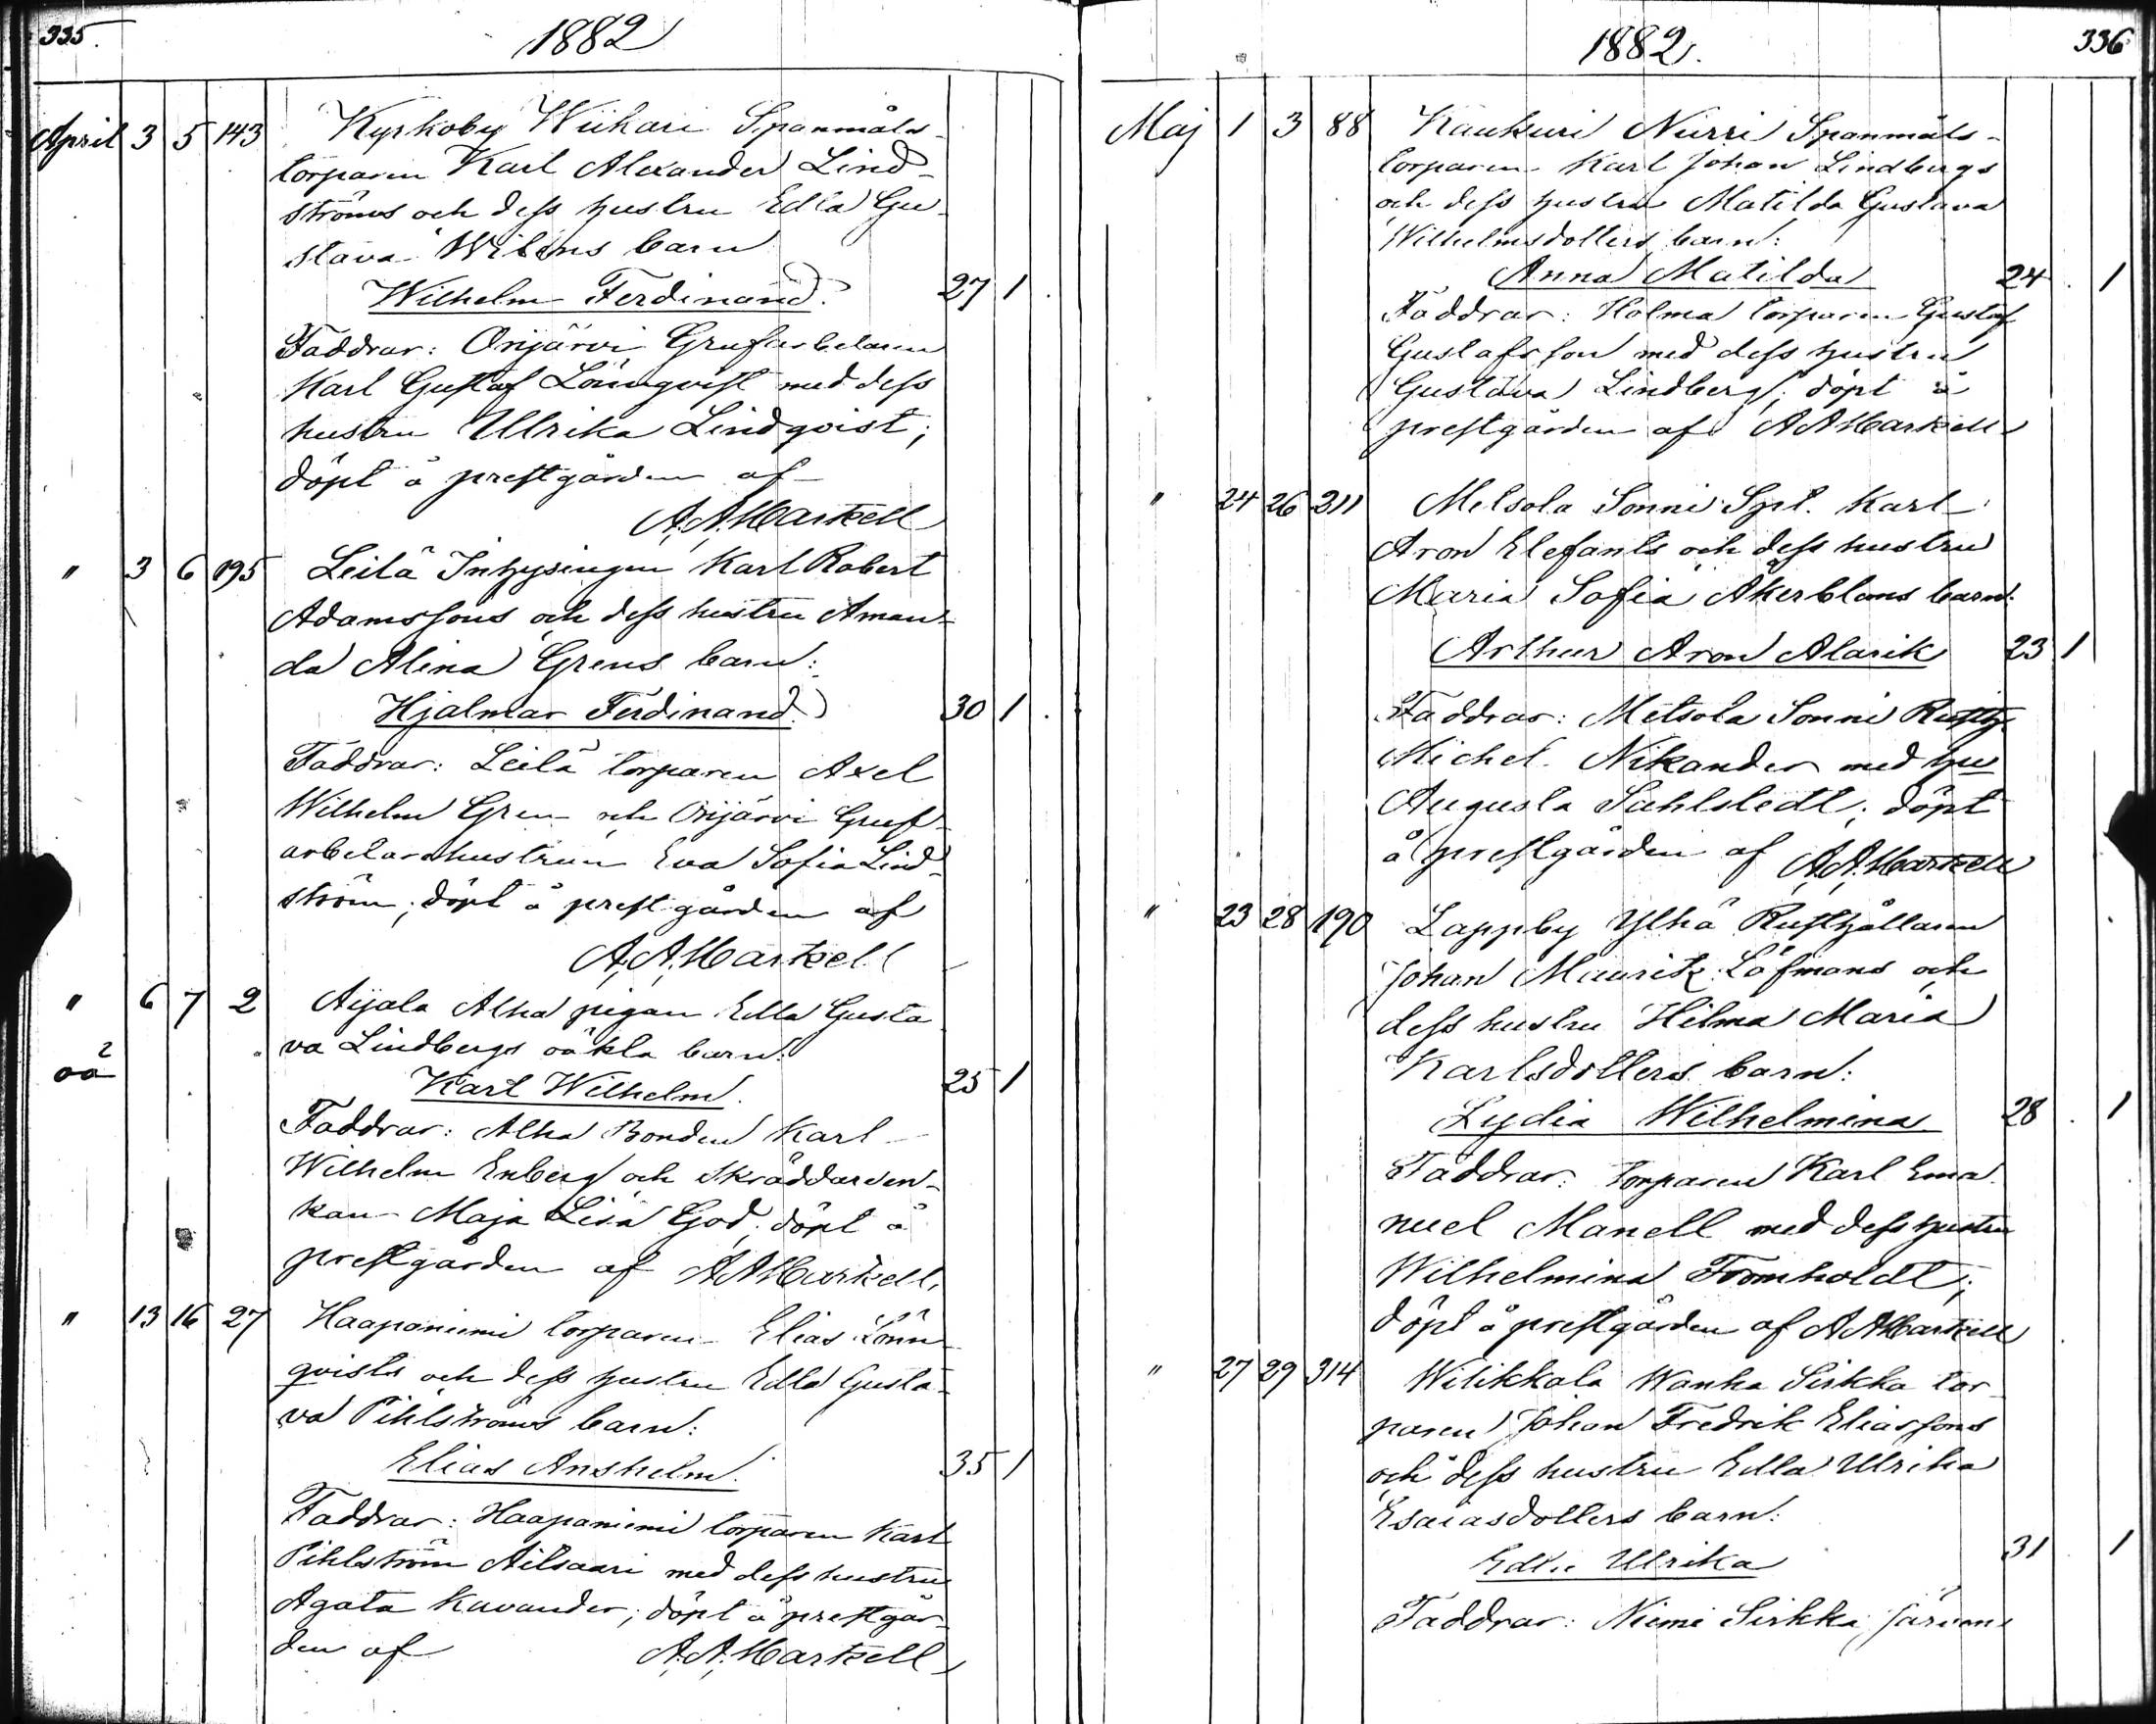 335.
1882
April 3 5 143 Kyrkoby Wiihari Spanmåls-
torparen Karl Alexander Lind-
ströms och dess hustru Edla Gu-
stava Wiléns barn
Wilhelm Ferdinand. 27 1
Faddrar: Orijärvi Grufarbetaren
Karl Gustaf Lönnqvist med dess
hustru Ullrika Lindqvist;
döpt å prestgården af
A. A. Markell
" 3 6 195 Leilä Inhysingen Karl Robert
Adamssons och dess hustru Aman-
da Alina Grens barn:
Hjalmar Ferdinand. 30 1
Faddrar: Leilä torparen Axel
Wilhelm Gren och Orijärvi Gruf-
arbetarehustrun Eva Sofia Lind-
ström; döpt å prestgården af
A. A. Markell
" 6 7 2 Aijala Alha pigan Edla Gusta
oä 2 va Lindbergs oäkta barn:
Karl Wilhelm. 25 1
Faddrar: Alha Bonden Karl
Wilhelm Enberg och Skräddaren-
kan Maja Lisa God; döpt å
prestgården af A A Markell.
" 13 16 27 Haapaniemi torparen Elias Lönn-
qvists och dess hustru Edla Gusta-
va Pihlströms barn:
Elias Anshelm. 35 1
Faddrar: Haapaniemi torparen Karl
Pihlström Aitsaari med dess hustru
Agata Kavander; döpt å prestgår-
den af A. A. Markell
336
1882.
Maj 1 3 88 Kaukuri Nurri Spanmåls-
torparen Karl Johan Lindbergs
och dess hustru Matilda Gustava
Wilhelmsdotters barn:
Anna Matilda 24 1
Faddrar: Holma torparen Gustaf
Gustafsson med dess hustru
Gustava Lindberg; döpt å
prestgården af A A Markell
" 24 26 211 Metsola Sonni Spt. Karl
Aron Elefants och dess hustru
Maria Sofia Åkerbloms barn:
Arthur Aron Alarik 23 1
Faddrar: Metsola Sonni Rusth.
Michel Nikander med hu
Augusta Sahlstedt; döpt
å prestgården af A. A. Markell
" 23 28 190 Lappby Ylhä Rusthållaren
Johan Mauritz Löfmans och
dess hustru Hilma Maria
Karlsdotters barn:
Lydia Wilhelmina 28 1
Faddrar: torparen Karl Ema
nuel Manell med dess hustru
Wilhelmina Fromholdt;
döpt å prestgården af A A Markell
" 27 29 314 Wiikkala Wanha Sirkka tor-
paren Johan Fredrik Eliassons
och dess hustru Edla Ulrika
Esaiasdotters barn:
Edla Ulrika 31 1
Faddrar: Niemi Sirkka